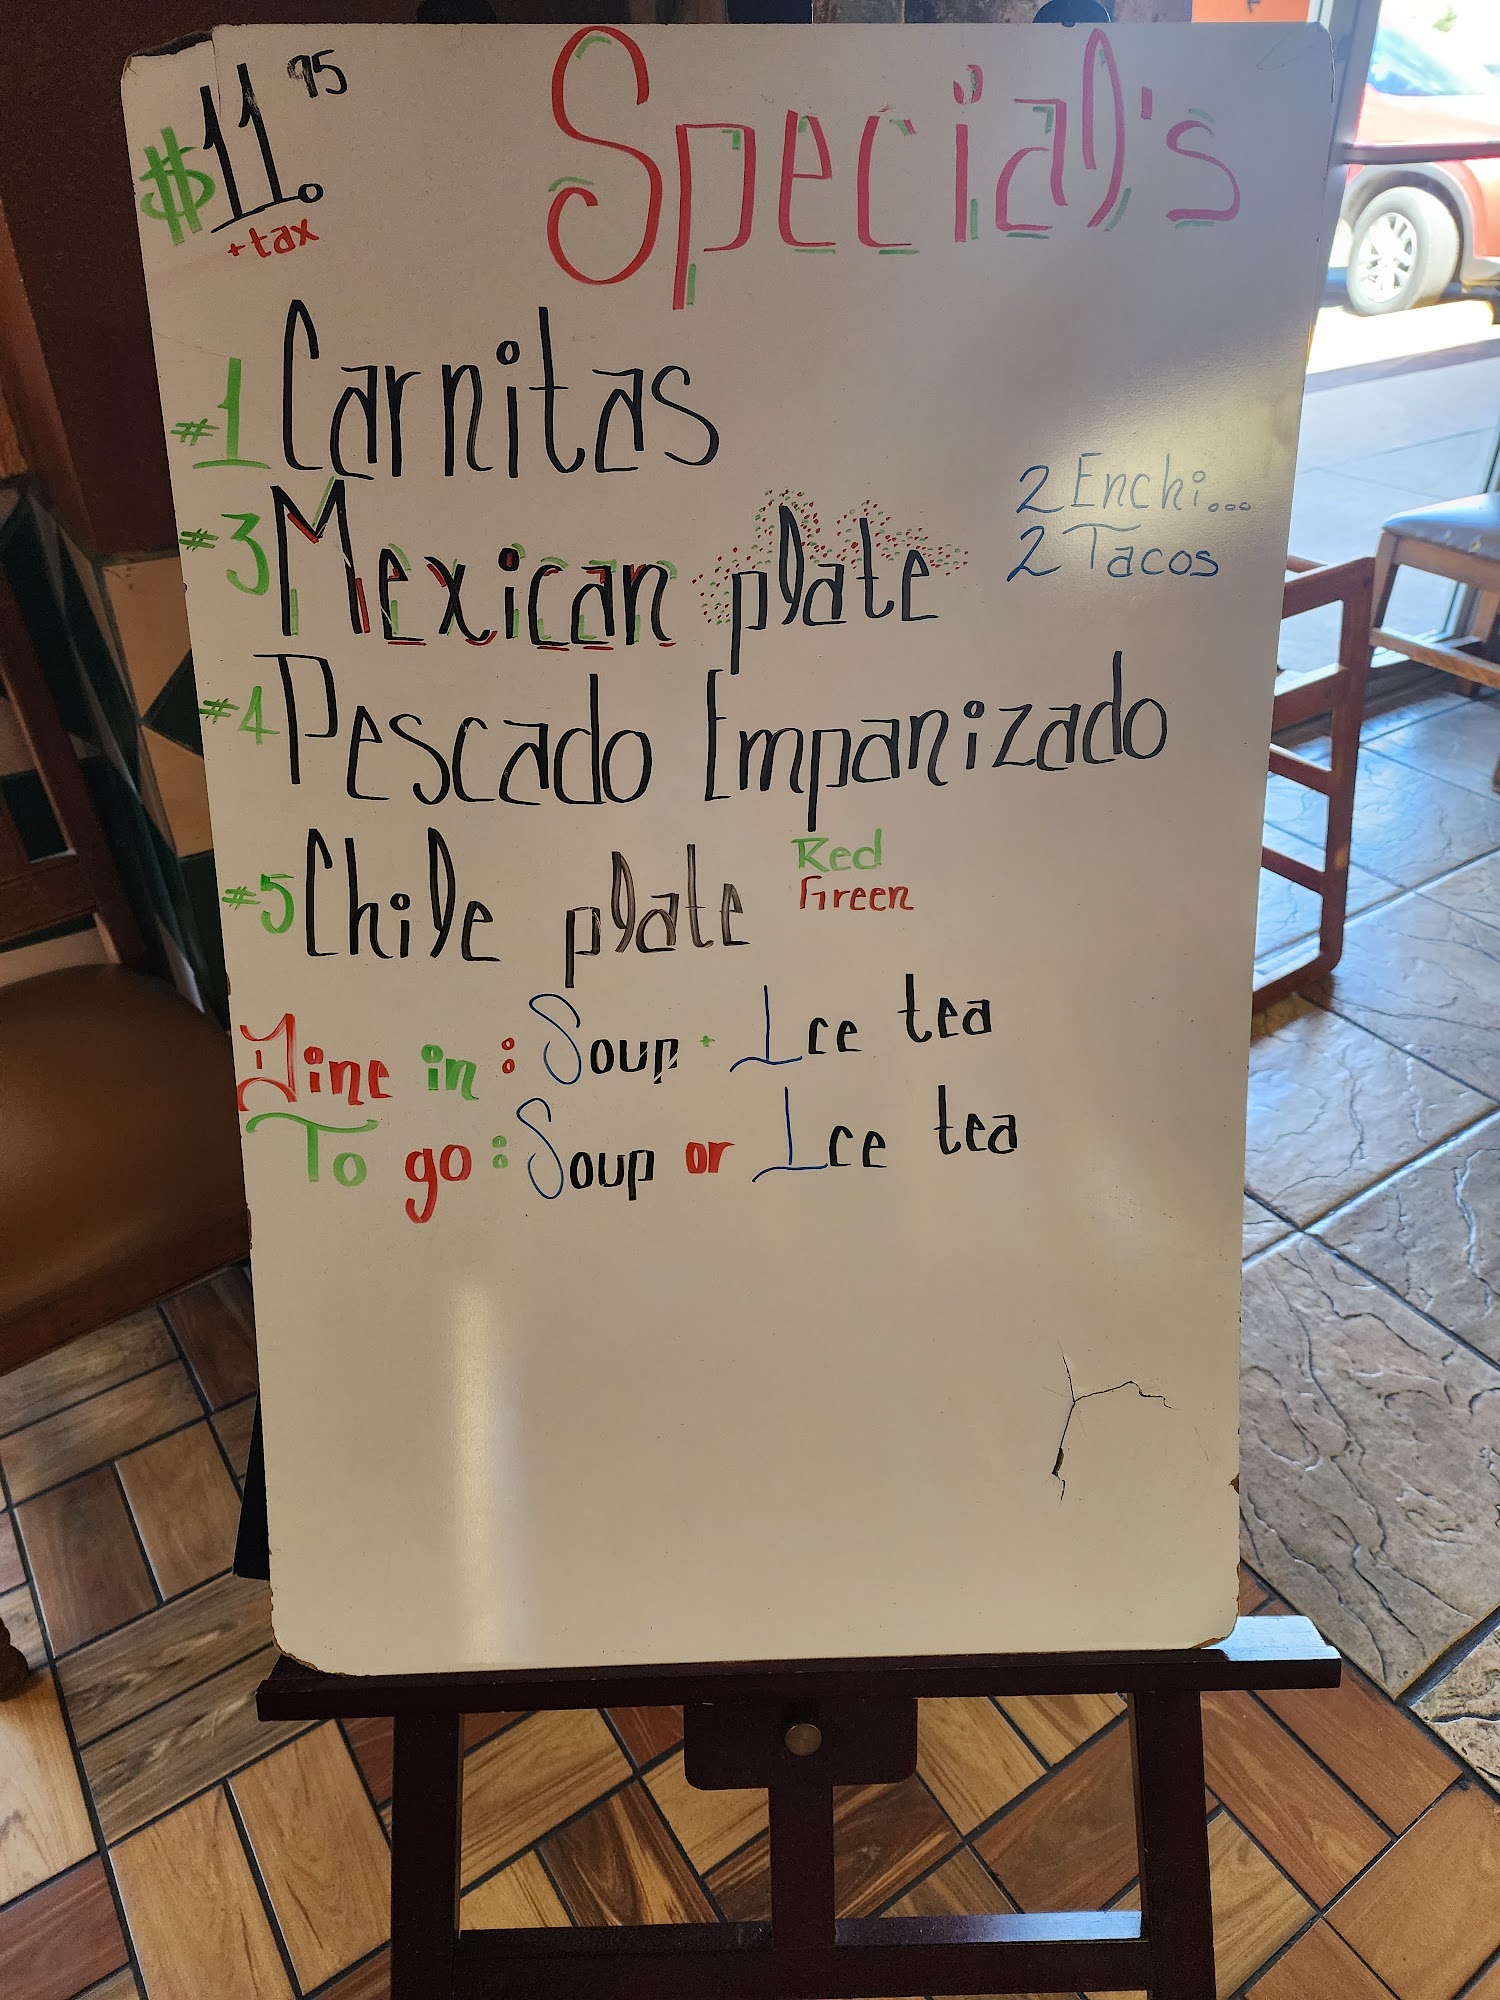 $11.95
+tax
Special's
#1 Carnitas
#3 Mexican plate
2 Enchi...
2 Tacos
#4 Pescado Empanizado
#5 Chile plate
Red
Green
Dine in: Soup + Ice tea
To go: Soup or Ice tea